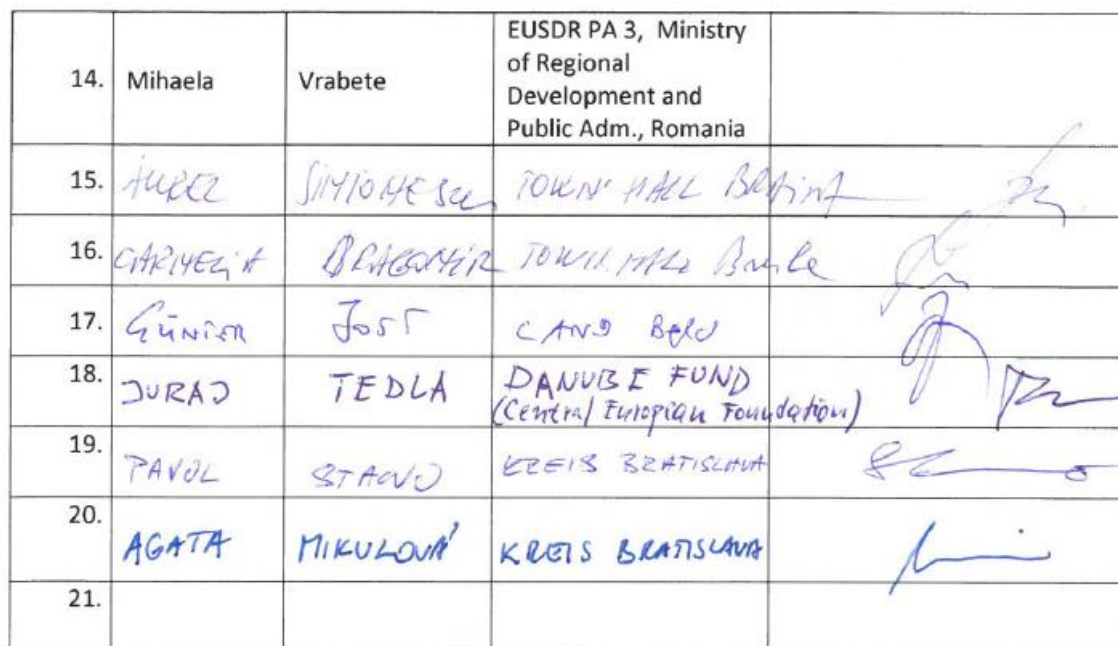 14. Mihaela Vrabete EUSDR PA 3, Ministry
of Regional
Development and
Public Adm., Romania
15. AUREL SIMIONESCU TOWN HALL
16. BRAGOMIR TOWN HALL
17. GÜNTER JOST LAND
18. JURAJ TEDLA DANUBE FUND
(Central Europian Foundation)
19. PAVOL STANO KREIS BRATISLAVA
20. AGATA MIKULOVÁ KREIS BRATISLAVA
21.